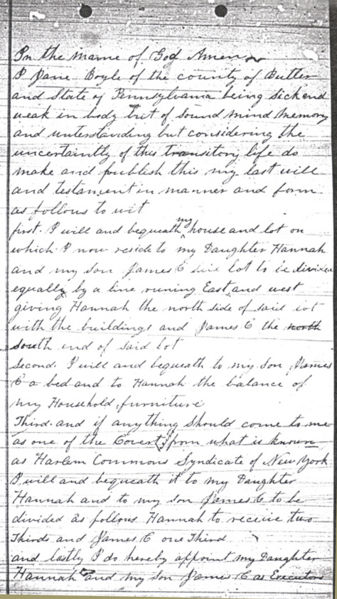 In the Name of God Amen
I Jane Boyle of the county of Butler
and State of Pennsylvania being sick and
weak in body but of sound mind memory
and understanding but considering the
uncertaintly of this transitory life do
make and publish this my last will
and testament in manner and form
as follows to wit
first. I will and bequeath my house and lot on
which I now reside to my Daughter Hannah
and my son James C said Lot to be divided
equally by a line runing East and west
giving Hannah the north side of said lot
with the buildings and James C the north
south end of said Lot
Second I will and bequeath to my son James
C a bed and to Hannah the balance of
my Household furniture
Third and if anything should come to me
as one of the from what is known
as Harlem Commons Syndicate of New York
I will and bequeath it to my Daughter
Hannah and to my son James C to be
divided as follows Hannah to receive two
Thirds and James C one Third
and lastly I do hereby appoint my Daughter
Hannah and my son James C as Executors